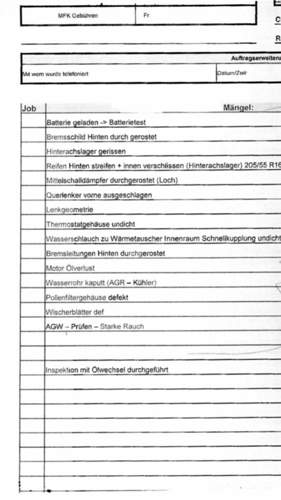 MFK Gebühren Fr
C
R
Auftragserweiteru
Mit wem wurde telefoniert Datum/Zeit
Job Mängel:
Batterie geladen -> Batterietest
Bremsschild Hinten durch gerostet
Hinterachslager gerissen
Reifen Hinten streifen + innen verschlissen (Hinterachslager) 205/55 R16
Mittelschalldämpfer durchgerostet (Loch)
Querlenker vorne ausgeschlagen
Lenkgeometrie
Thermostatgehäuse undicht
Wasserschlauch zu Wärmetauscher Innenraum Schnellkupplung undicht
Bremsleitungen Hinten durchgerostet
Motor Ölverlust
Wasserrohr kaputt (AGR – Kühler)
Pollenfiltergehäuse defekt
Wischerblätter def
AGW – Prüfen – Starke Rauch
Inspektion mit Ölwechsel durchgeführt